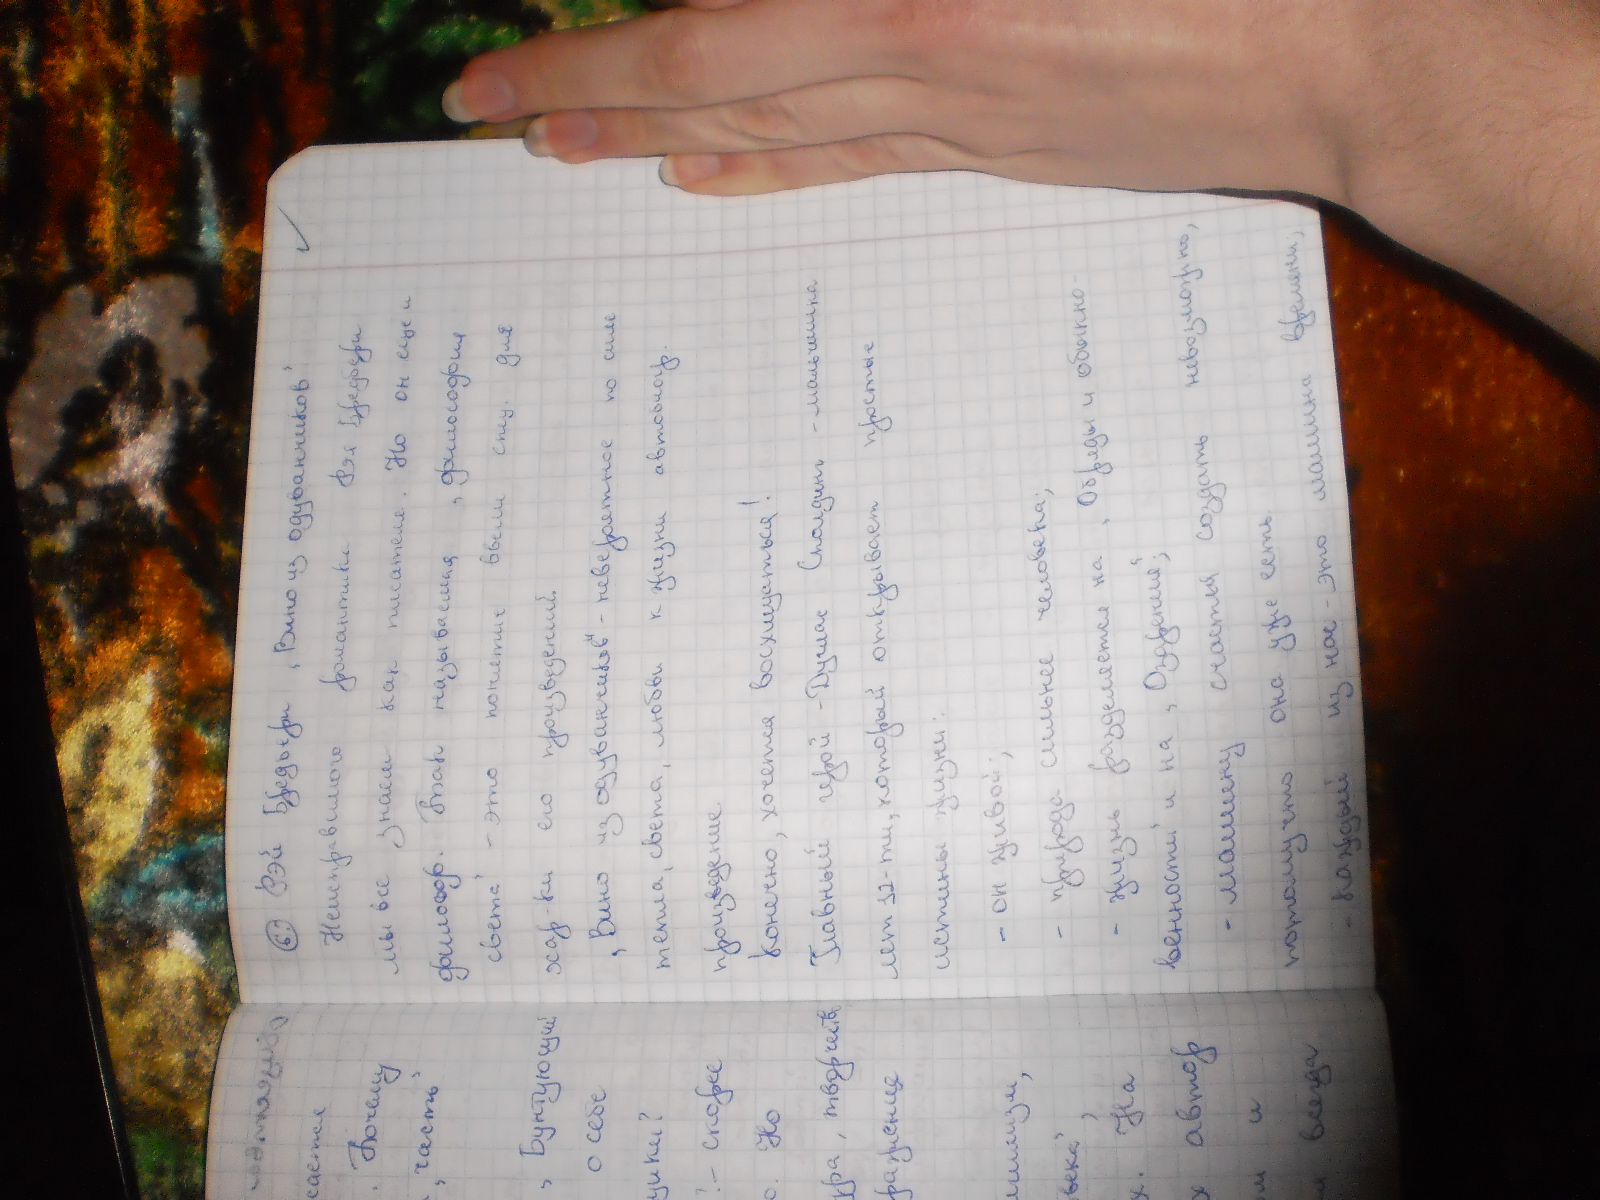 6) Рэй Брэдбери „Вино из одуванчиков"
Неисправимого романтика Рэя Брэдбери
мы все знаем как писателя. Но он еще и
философ. Так называемая „философия
света" - это понятие ввели спец. для
хар-ки его произведений.
„Вино из одуванчиков" - невероятное по силе
тепла, света, любви к жизни автобиогр.
произведение.
Конечно, хочется восхищаться!
Главный герой - Дуглас Сполдинг - мальчишка
лет 12-ти, который открывает простые
истины жизни:
- он живой;
- природа сильнее человека;
- жизнь разделяется на „Обряды и обыкно-
венности" и на „Озарения";
- машину счастья создать невозможно,
потому что она уже есть
- каждый из нас - это машина времени;
Почему
„часть"
„Бунтующий
о себе
? - скорее
Но
ра, творчеств
ражение
На
х автор
и
всегда